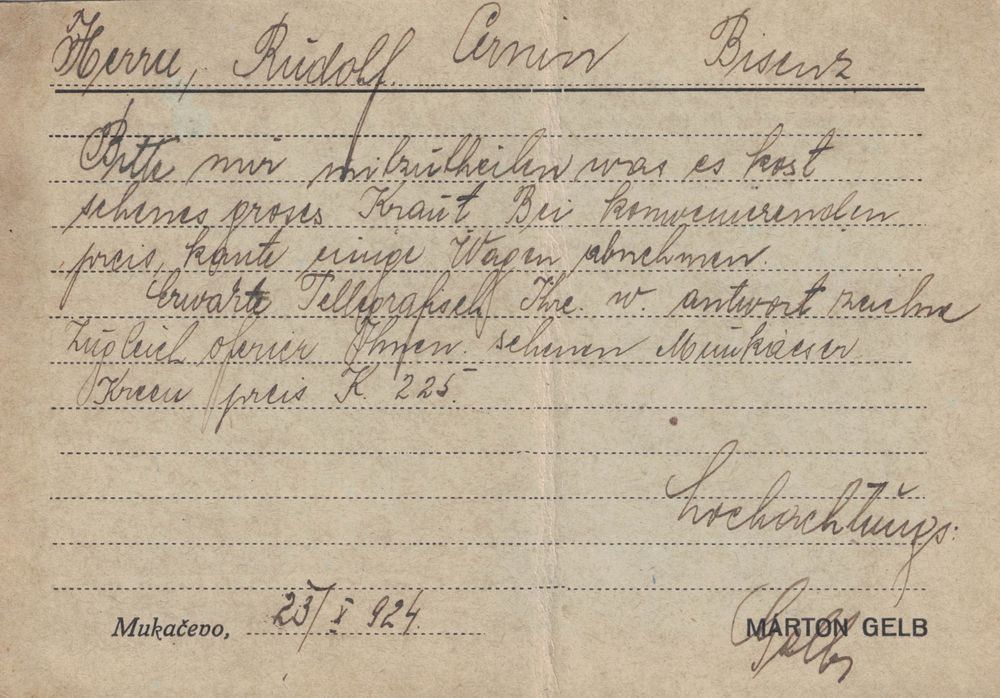 Herrn, Rudolf Cernin Bisenz
Bitte mir mitzutheilen was es kost
schenes groses Kraut Bei konwenierenden
preis, kante einige Wagen abnehmen
Erwarte Tellegrafisch Ihre w. antwort zeichne
Zugleich oferier Ihnen schenen Munkacser
Kreen preis K. 225.
Hochachtungs:
Mukačevo, 23/X 924.
MÁRTON GELB
Gelb